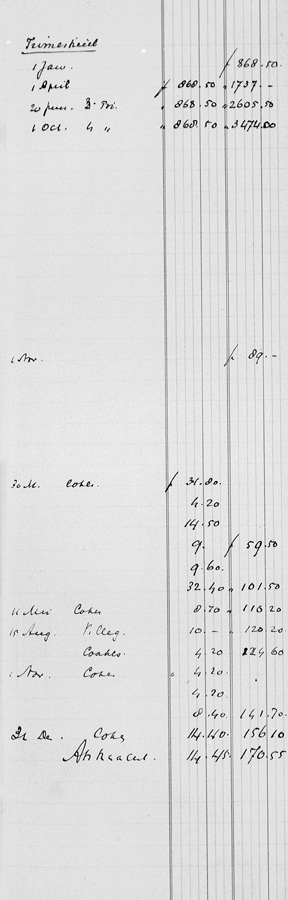 Trimestrieel
1 Jan. ƒ 868.50.
1 April ƒ 868.50 " 1737.-
20 Juni. 3e Tri. " 868.50 " 2605.50
1 Oct. 4 " " 868.50 " 3474.00
1 Nov. ƒ 89.-
30 M. Cokes. ƒ 31.80.
4.20
14.50
9. ƒ 59.50
9.60.
32.40 " 101.50
11 Mei Cokes 8.70 " 110.20
15 Aug. 10.- " 120.20
Coakes. 4.20 124.60
1 Nov. Cokes " 4.20.
4.20.
8.40. 141.70.
31 De. Cokes 14.40. 156.10
14.45. 170.55